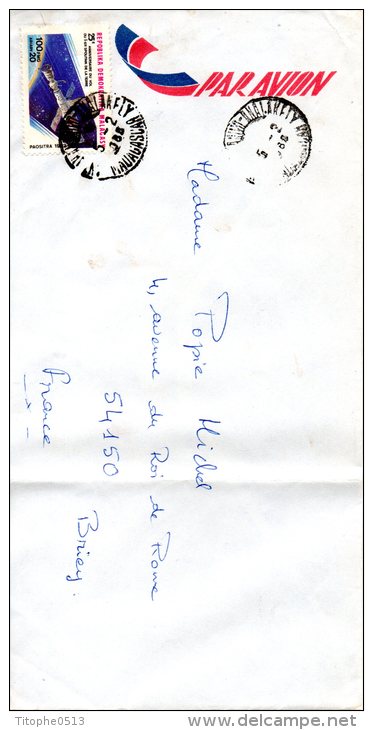 REPOBLIKA DEMOKRATIKA MALAGASY
25e ANNIVERSAIRE DU VOL
100 FMG
ARIARY 20
PAOSITRA
PAR AVION
Madame Popie Michel
4, avenue du Roi de Rome
54150 Briey.
France
Titophe0513
delcampe.net